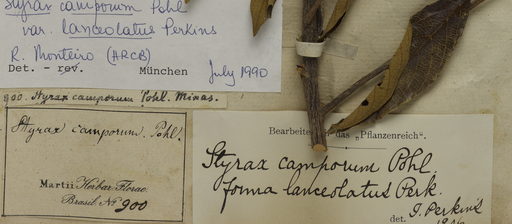 Styrax camporum Pohl
var. lanceolatus Perkins
R. Monteiro (HRCB)
Det. - rev. München July 1990
900. Styrax camporum Pohl. Minas.
Styrax camporum. Pohl.
Martii Herbar. Florae
Brasil. No 900
Bearbeitet das „Pflanzenreich“.
Styrax camporum Pohl
forma lanceolatus Perk.
det. J. Perkins